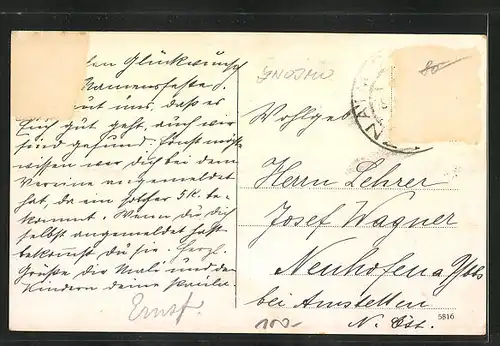 den Glückwunsch
Namensfeste.
uns, dass es
Euch gut geht, auch wir
sind gesund. Sonst möchte
wissen wer dich bei dem
Vereine angemeldet
hat, da ein solcher 5K. be-
kommt. Wenn du dich
selbst angemeldet hast
bekommst du sie. Herzl.
Grüße dir Mali und den
Kindern deine Paula
Ernst.
GNOJMO
80
Wohlgeb
Herrn Lehrer
Josef Wagner
Neuhofen a. Ybbs
bei Amstetten
N. Öst.
100-
5816